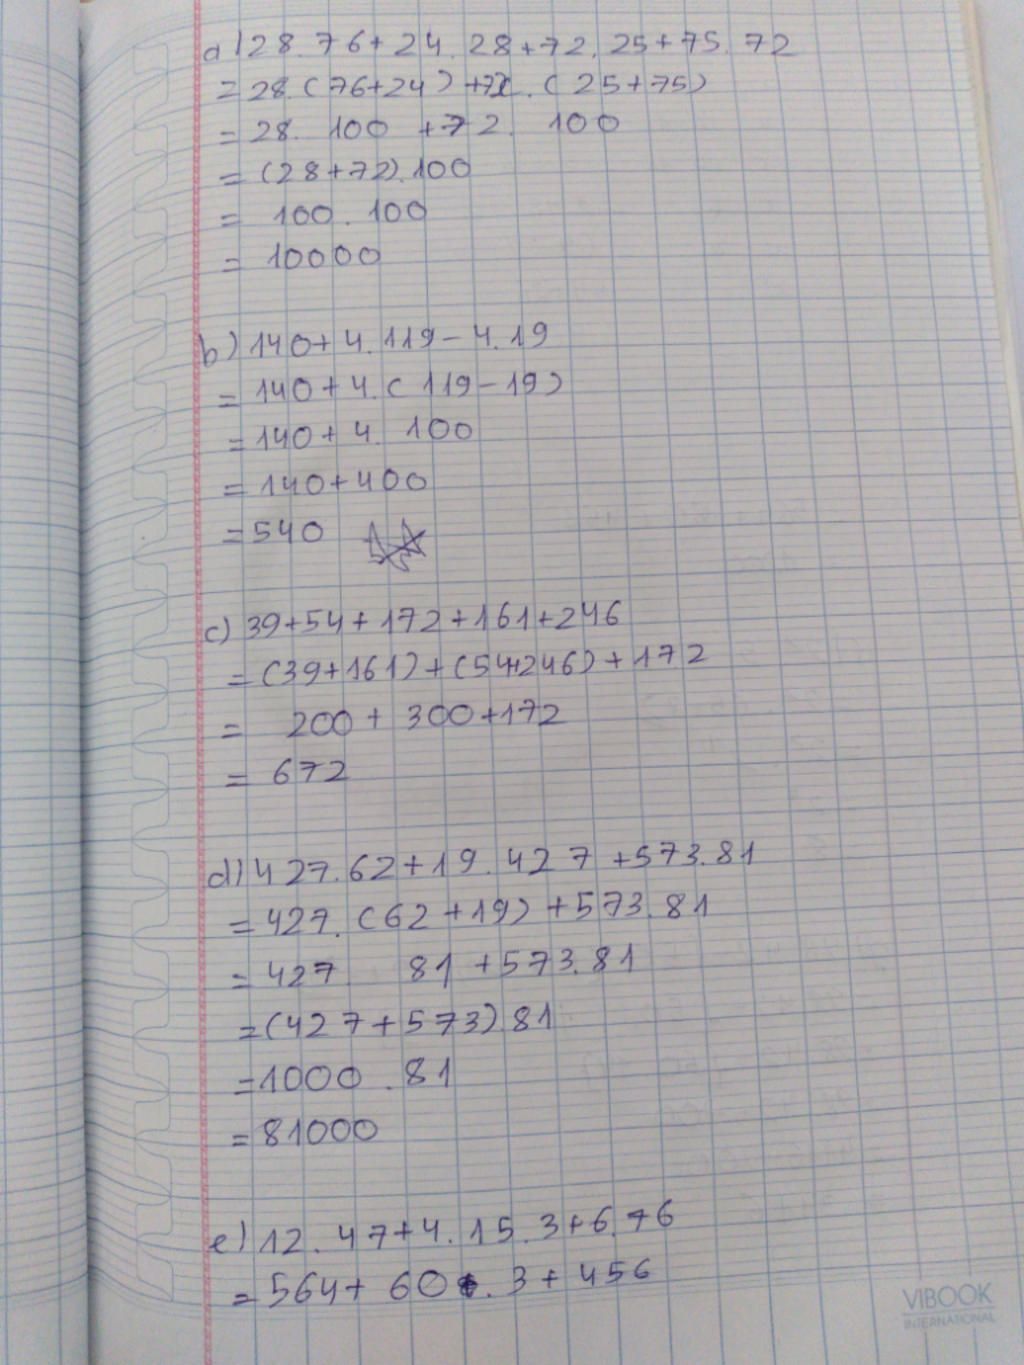 a) 28. 76 + 24. 28 + 72. 25 + 75. 72
= 28. (76+24) + 72. (25+75)
= 28. 100 + 72. 100
= (28+72).100
= 100. 100
= 10000
b) 140 + 4. 119 - 4. 19
= 140 + 4. (119-19)
= 140 + 4. 100
= 140 + 400
= 540
c) 39+54+172+161+246
= (39+161)+(54+246)+172
= 200 + 300+172
= 672
d) 427.62+19.427+573.81
= 427.(62+19)+573.81
= 427 81+573.81
= (427+573) 81
= 1000.81
= 81000
e) 12. 47+4. 15. 3+6. 76
= 564+ 60. 3 + 456
VIBOOK
INTERNATIONAL